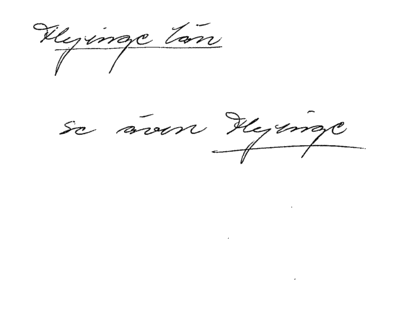 Flyinge län
se även Flyinge